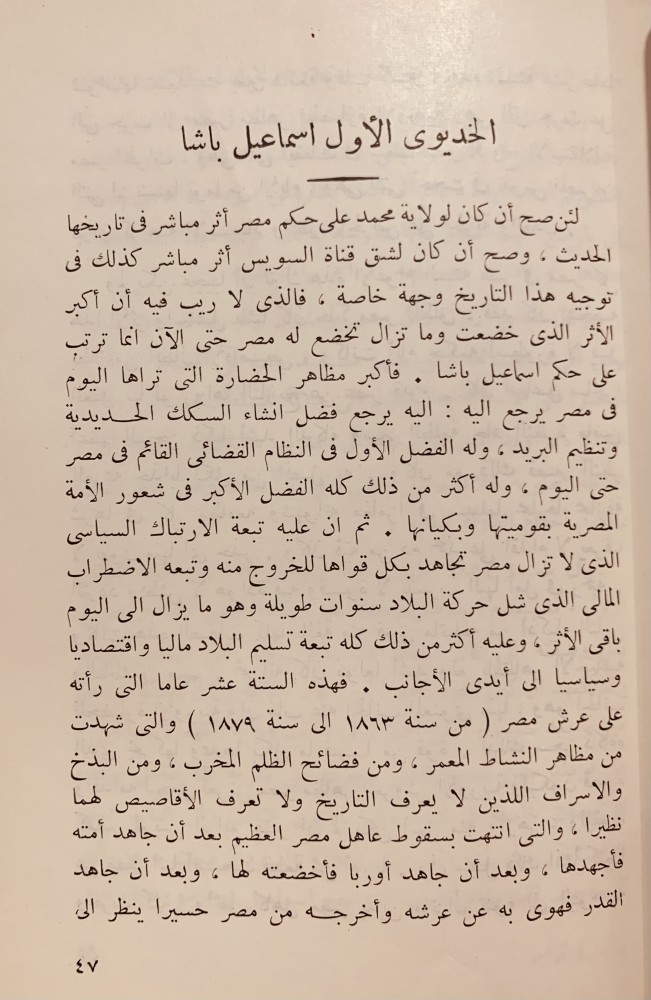 الخديوى الأول اسماعيل باشا
لئن صح أن كان لولاية محمد على حكم مصر أثر مباشر فى تاريخها
الحديث ، وصح أن كان لشق قناة السويس أثر مباشر كذلك فى
توجيه هذا التاريخ وجهة خاصة ، فالذى لا ريب فيه أن أكبر
الأثر الذى خضعت وما تزال تخضع له مصر حتى الآن انما ترتب
على حكم اسماعيل باشا . فأكبر مظاهر الحضارة التى تراها اليوم
فى مصر يرجع اليه : اليه يرجع فضل انشاء السكك الحـديدية
وتنظيم البريد ، وله الفضل الأول فى النظام القضائى القائم فى مصر
حتى اليوم ، وله أكثر من ذلك كله الفضل الأكبر فى شعور الأمة
المصرية بقوميتها وبكيانها . ثم ان عليه تبعة الارتباك السياسى
الذى لا تزال مصر تجاهد بكل قواها للخروج منه وتبعه الاضطراب
المالى الذى شل حركة البلاد سنوات طويلة وهو ما يزال الى اليوم
باقى الأثر ، وعليه أكثر من ذلك كله تبعة تسليم البلاد ماليا واقتصاديا
وسياسيا الى أيدى الأجانب . فهذه الستة عشر عاما التى رأته
على عرش مصر ( من سنة ١٨٦٣ الى سنة ١٨٧٩ ) والتى شهدت
من مظاهر النشاط المعمر ، ومن فضائح الظلم المخرب ، ومن البذخ
والاسراف اللذين لا يعرف التاريخ ولا تعرف الأقاصيص لهما
نظيرا ، والتى انتهت بسقوط عاهل مصر العظيم بعد أن جاهد أمته
فأجهدها ، وبعد أن جاهد أوربا فأخضعته لها ، وبعد أن جاهد
القدر فهوى به عن عرشه وأخرجـه من مصر حسيرا ينظر الى
٤٧